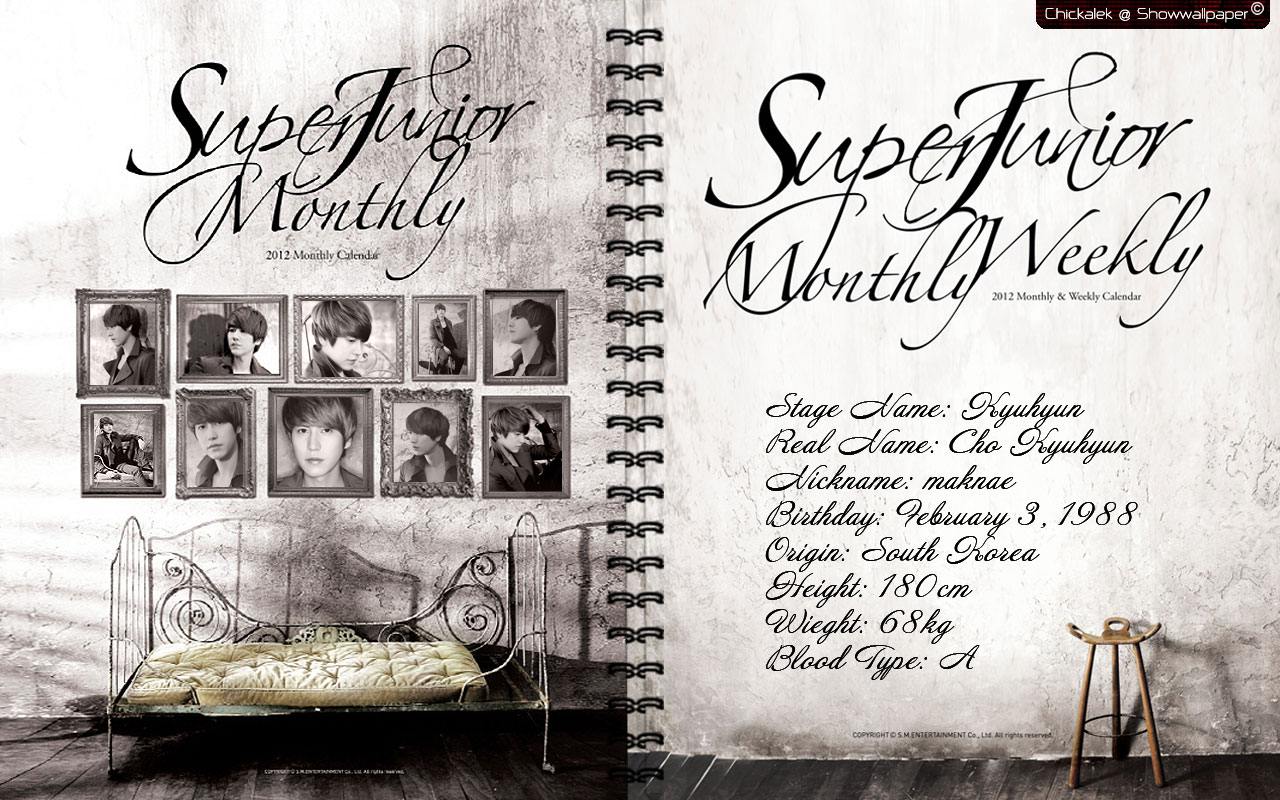 Chickalek @ Showwallpaper©
Super Junior
Monthly
2012 Monthly Calendar
COPYRIGHT © S.M.ENTERTAINMENT Co., Ltd. All rights reserved.
Super Junior
Monthly Weekly
2012 Monthly & Weekly Calendar
Stage Name: Kyuhyun
Real Name: Cho Kyuhyun
Nickname: maknae
Birthday: February 3, 1988
Origin: South Korea
Height: 180cm
Wieght: 68kg
Blood Type: A
COPYRIGHT © S.M.ENTERTAINMENT Co., Ltd. All rights reserved.